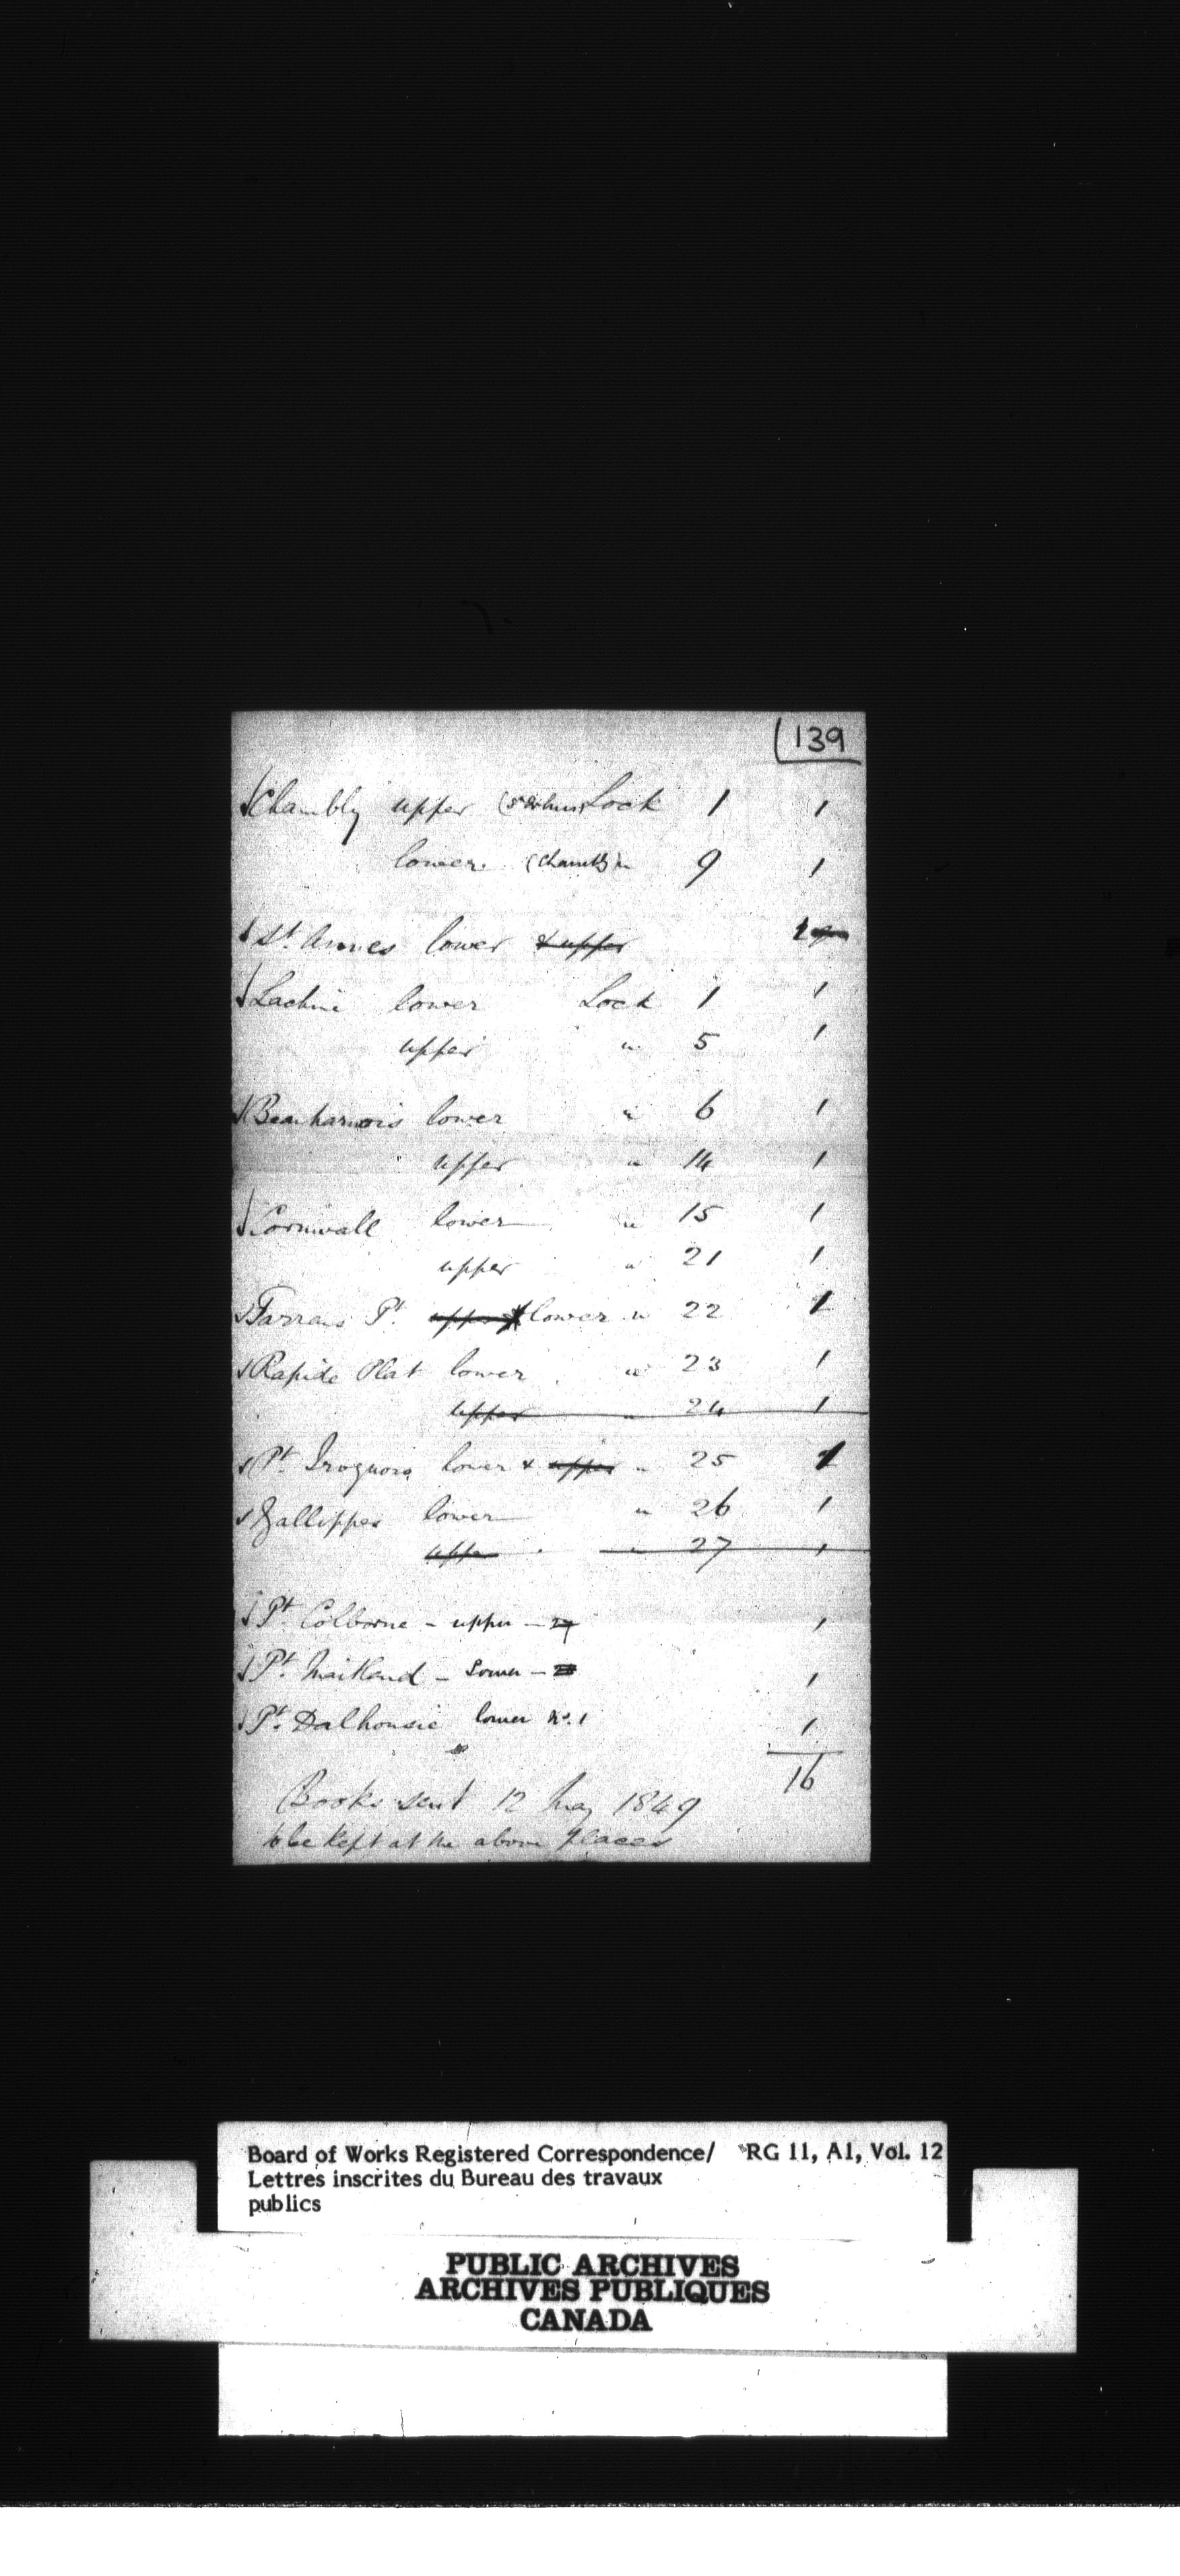 139
Chambly upper (St Johns) Lock 1 1
lower (Chambly) " 9 1
St. Annes lower & upper 1
Lachine lower Lock 1 1
upper " 5 1
Beauharnois lower " 6 1
upper " 14 1
Cornwall lower " 15 1
upper " 21 1
Farrans Pt. upper & lower " 22 1
Rapide Plat lower " 23 1
upper " 24 1
Pt. Iroquois lower & upper " 25 1
Gallippes lower " 26 1
upper " 27 1
Pt Colborne - upper - 27 1
Pt. Maitland - Lower - 1
Pt. Dalhousie lower No. 1 1
16
Books sent 12 May 1849
to be kept at the above places
Board of Works Registered Correspondence/ RG 11, A1, Vol. 12
Lettres inscrites du Bureau des travaux
publics
PUBLIC ARCHIVES
ARCHIVES PUBLIQUES
CANADA